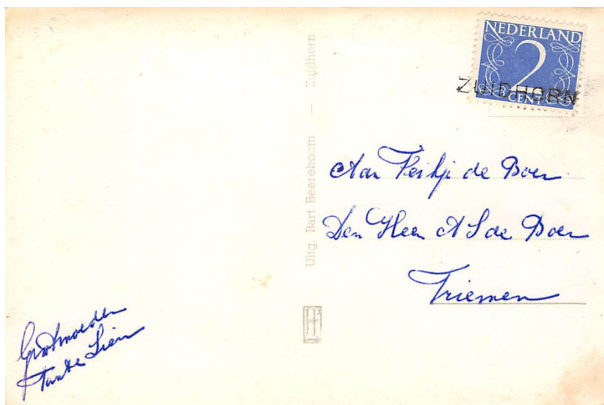 NEDERLAND
2
CENT
ZUIDHORN
Uitg. Bart Beereboom — Zuidhorn
Aan de Boer
Den Heer A S de Boer
Triemen
Grootmoeder
Tante Sien